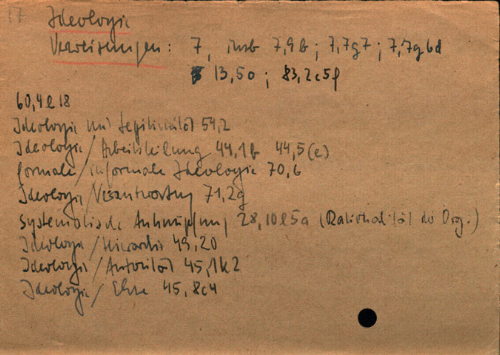 17 Ideologie
Verweisungen: 7, insb 7,9b; 7,7g7; 7,7g6d
13,5o; 83,2c5f
60,4l18
Ideologie und Legitimität 54,2
Ideologie/Arbeitsteilung 44,1b 44,5(e)
formale/informale Ideologie 70,6
Ideologie/Verantwortung 71,2g
systematische Anknüpfung 28,10l5a (Rationalität der Org.)
Ideologie/Hierarchie 49,20
Ideologie/Autorität 45,1k2
Ideologie/Ehre 45,8c4